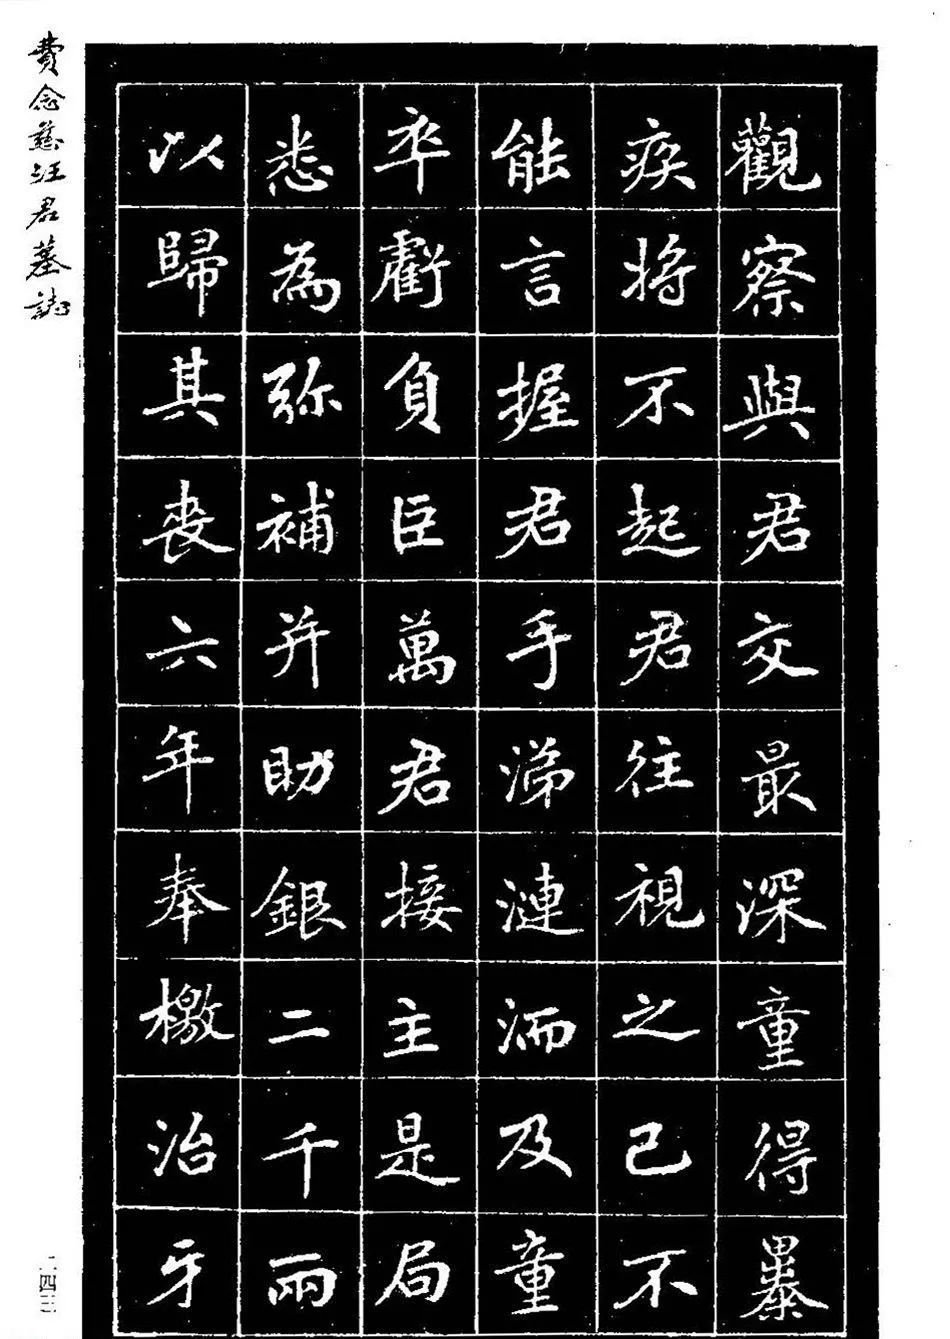 觀察與君交最深童得暴
疾將不起君往視之已不
能言握君手涕漣洏及童
卒虧負巨萬君接主是局
悉為弥補并助銀二千兩
以歸其喪六年奉檄治牙
費念慈汪君墓誌
二四三